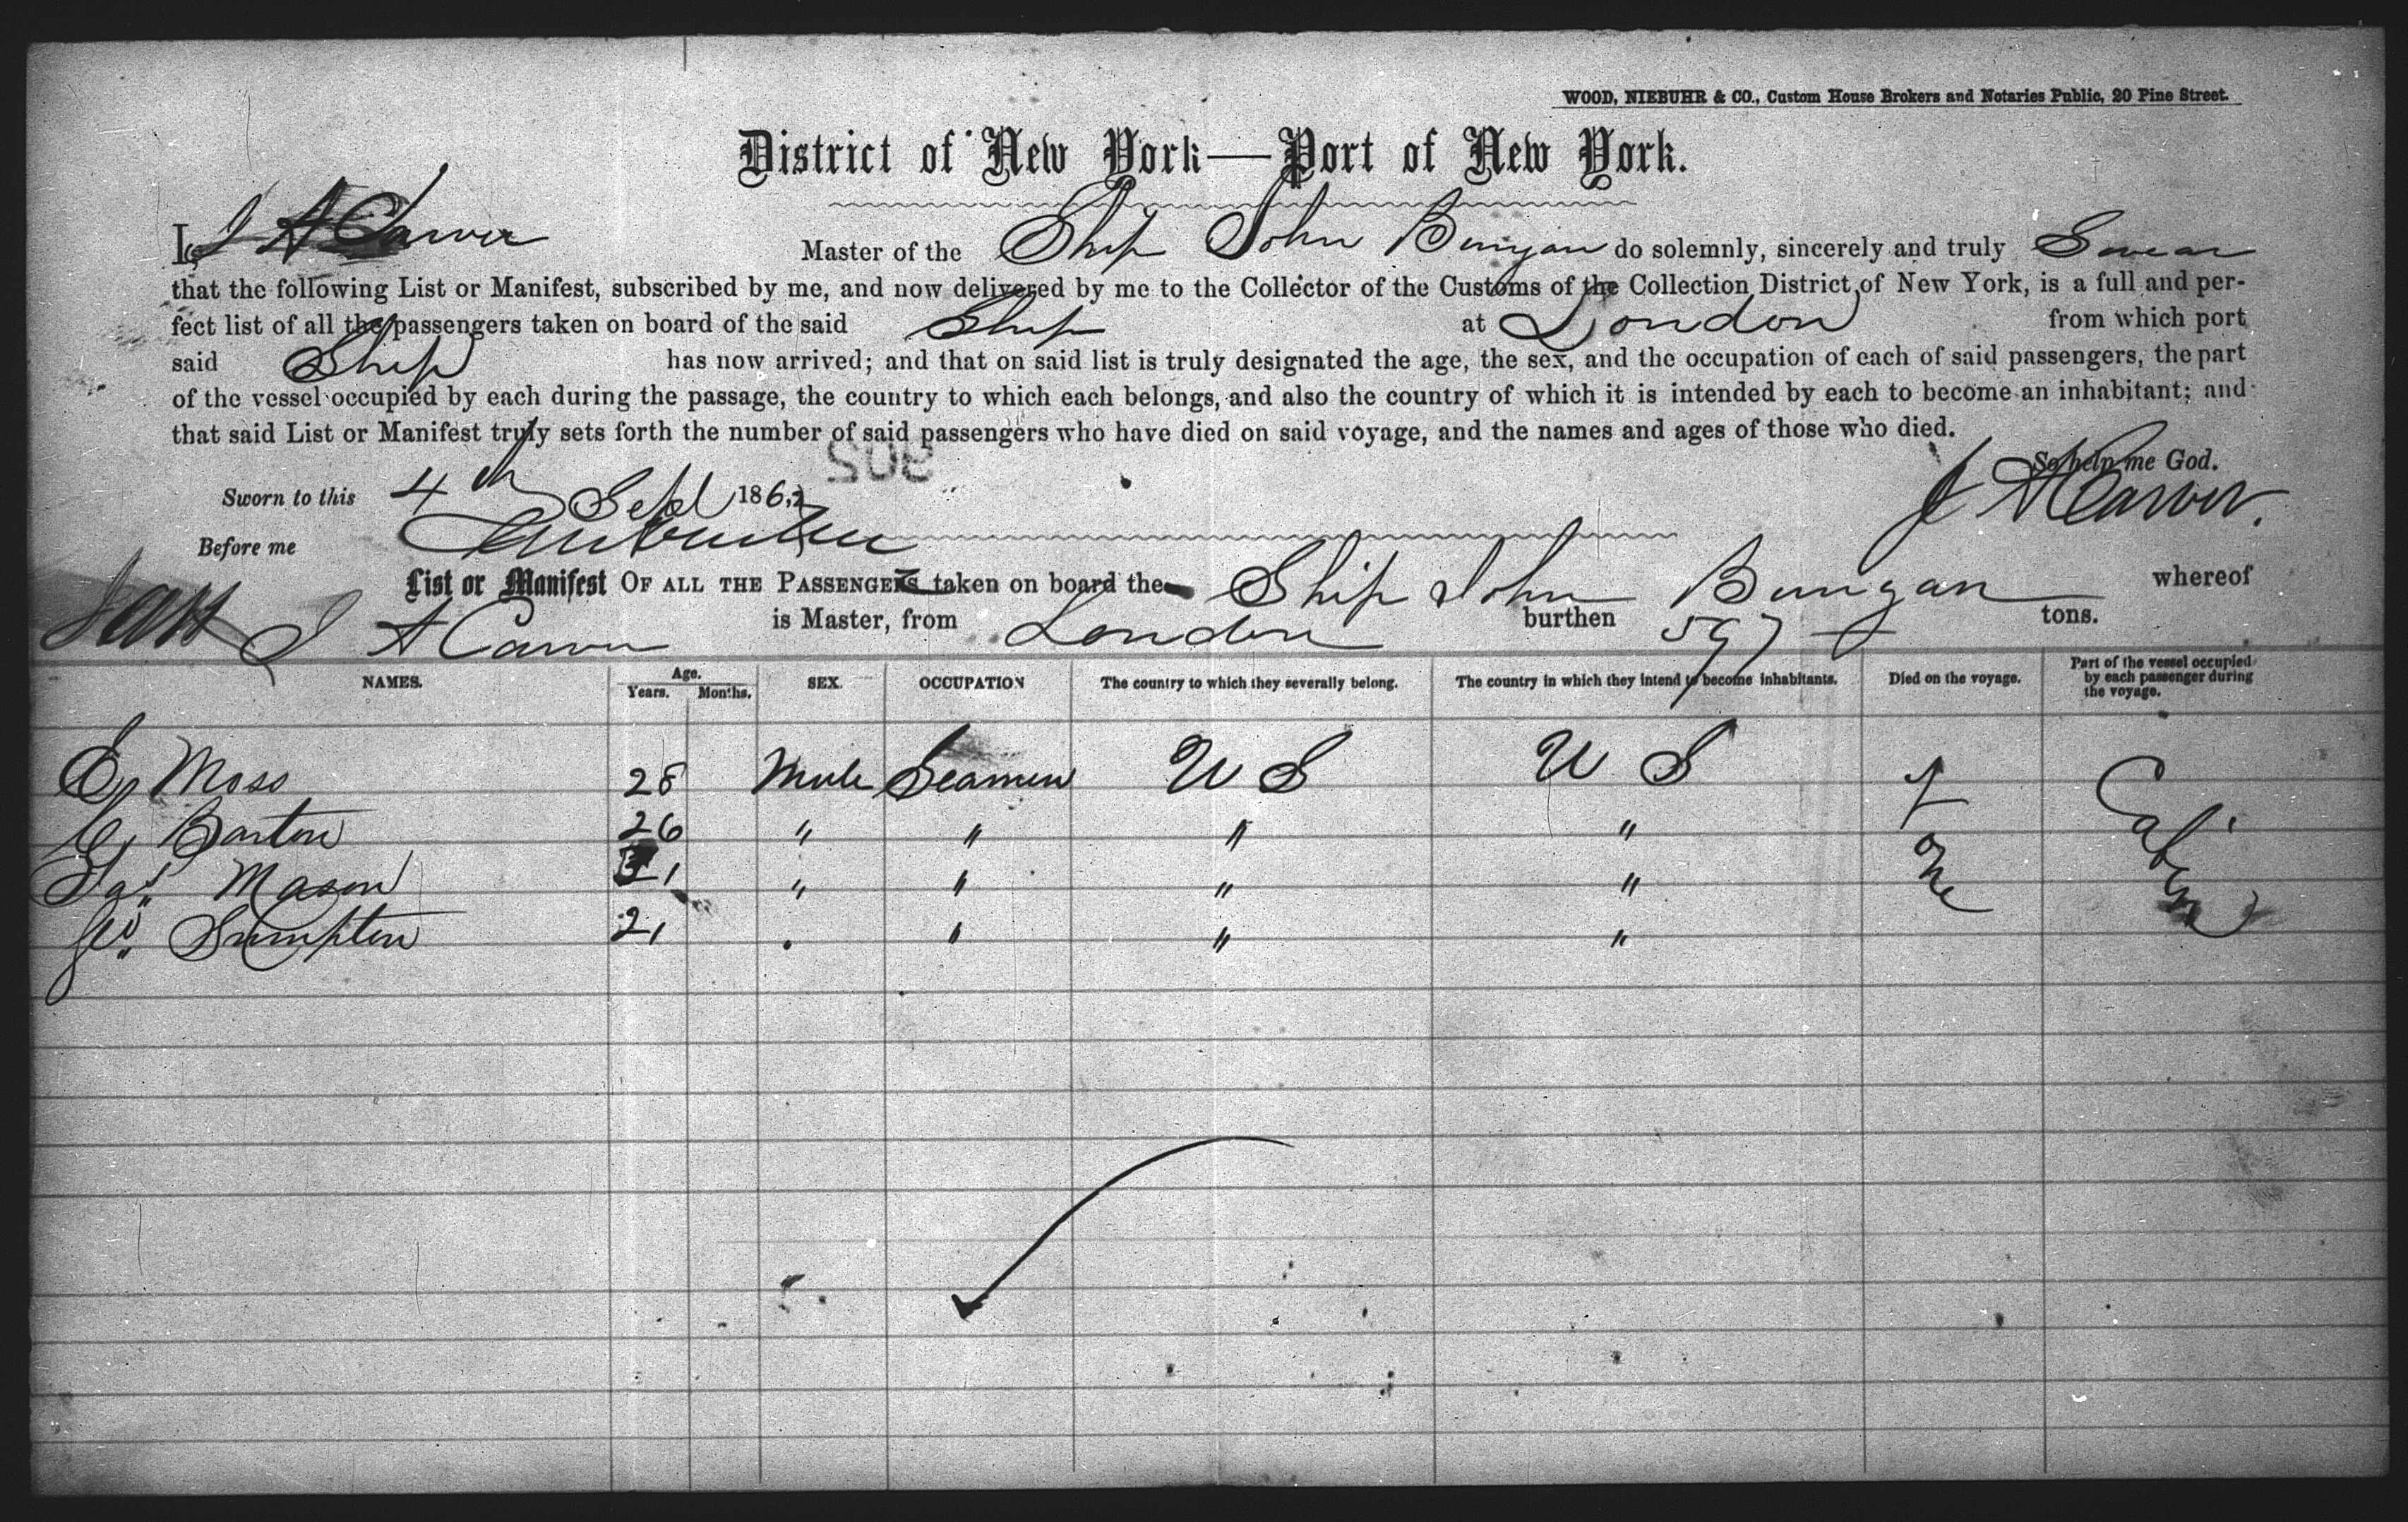 WOOD, NIEBUHR & CO., Custom House Brokers and Notaries Public, 20 Pine Street.
District of New York—Port of New York.
I, J A Carver Master of the Ship John Bunyan do solemnly, sincerely and truly Swear
that the following List or Manifest, subscribed by me, and now delivered by me to the Collector of the Customs of the Collection District of New York, is a full and per-
fect list of all the passengers taken on board of the said Ship at London from which port
said Ship has now arrived; and that on said list is truly designated the age, the sex, and the occupation of each of said passengers, the part
of the vessel occupied by each during the passage, the country to which each belongs, and also the country of which it is intended by each to become an inhabitant; and
that said List or Manifest truly sets forth the number of said passengers who have died on said voyage, and the names and ages of those who died.
So help me God.
Sworn to this 4th Sept 186
J A Carver.
Before me
List or Manifest OF ALL THE PASSENGERS taken on board the Ship John Bunyan whereof
J A Carver is Master, from London burthen 597 tons.
NAMES. Age. Years. Months. SEX. OCCUPATION The country to which they severally belong. The country in which they intend to become inhabitants. Died on the voyage. Part of the vessel occupied by each passenger during the voyage.
E Moss 28 Male Seamen U S U S None Cabin
Barton 26 " " " "
Jas. Mason 21 " " " "
Geo. Sumpton 21 " " " "